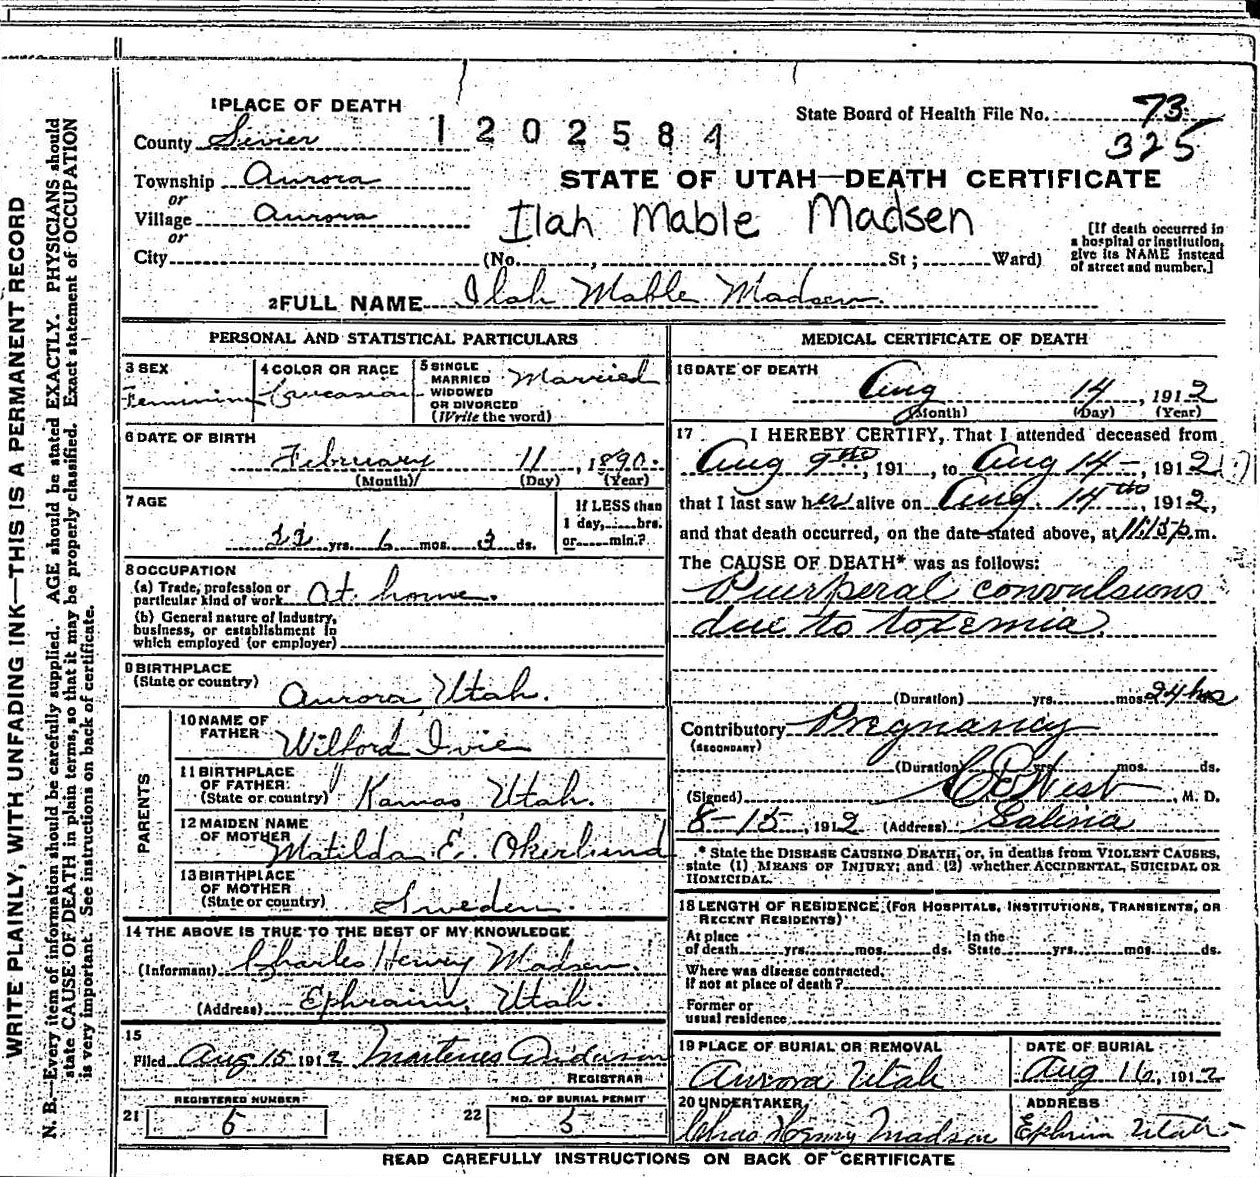 1 PLACE OF DEATH
County Sevier
1202584
State Board of Health File No. 73
325
Township Aurora
or
Village Aurora
or
City (No. , St; Ward)
STATE OF UTAH—DEATH CERTIFICATE
Ilah Mable Madsen
[If death occurred in
a hospital or institution,
give its NAME instead
of street and number.]
2 FULL NAME Ilah Mable Madsen
PERSONAL AND STATISTICAL PARTICULARS
3 SEX
Feminine
4 COLOR OR RACE
Caucasian
5 SINGLE
MARRIED
WIDOWED
OR DIVORCED
(Write the word)
Married
6 DATE OF BIRTH
February 11, 1890.
(Month) (Day) (Year)
7 AGE
22 yrs. 6 mos. 3 ds.
If LESS than
1 day, hrs.
or min.?
8 OCCUPATION
(a) Trade, profession or
particular kind of work At home.
(b) General nature of industry,
business, or establishment in
which employed (or employer)
9 BIRTHPLACE
(State or country)
Aurora, Utah.
PARENTS
10 NAME OF
FATHER
Wilford Ivie
11 BIRTHPLACE
OF FATHER
(State or country) Kamas, Utah.
12 MAIDEN NAME
OF MOTHER
Matilda E. Okerlund
13 BIRTHPLACE
OF MOTHER
(State or country) Sweden.
14 THE ABOVE IS TRUE TO THE BEST OF MY KNOWLEDGE
(Informant) Charles Henry Madsen.
(Address) Ephraim, Utah.
15
Filed Aug 15 1912 Martenus Anderson
REGISTRAR
REGISTERED NUMBER
21 5
NO. OF BURIAL PERMIT
22 5
MEDICAL CERTIFICATE OF DEATH
16 DATE OF DEATH
Aug 14, 1912
(Month) (Day) (Year)
17 I HEREBY CERTIFY, That I attended deceased from
Aug 9th, 191 , to Aug 14, 1912
that I last saw her alive on Aug. 14th, 1912,
and that death occurred, on the date stated above, at 11:15 p.m.
The CAUSE OF DEATH* was as follows:
Puirperal convulsions
due to toxemia.
(Duration) yrs. mos. 24 hrs
Contributory Pregnancy
(SECONDARY)
(Duration) yrs. mos. ds.
(Signed) West, M. D.
8-15, 1912 (Address) Salina
* State the DISEASE CAUSING DEATH, or, in deaths from VIOLENT CAUSES,
state (1) MEANS OF INJURY; and (2) whether ACCIDENTAL, SUICIDAL OR
HOMICIDAL.
18 LENGTH OF RESIDENCE (FOR HOSPITALS, INSTITUTIONS, TRANSIENTS, OR
RECENT RESIDENTS)
At place In the
of death yrs. mos. ds. State yrs. mos. ds.
Where was disease contracted,
if not at place of death?
Former or
usual residence
19 PLACE OF BURIAL OR REMOVAL
Aurora Utah
DATE OF BURIAL
Aug 16, 1912
20 UNDERTAKER
Chas Henry Madsen
ADDRESS
Ephrim Utah
READ CAREFULLY INSTRUCTIONS ON BACK OF CERTIFICATE
WRITE PLAINLY, WITH UNFADING INK—THIS IS A PERMANENT RECORD
N. B.—Every item of information should be carefully supplied. AGE should be stated EXACTLY. PHYSICIANS should
state CAUSE OF DEATH in plain terms, so that it may be properly classified. Exact statement of OCCUPATION
is very important. See instructions on back of certificate.